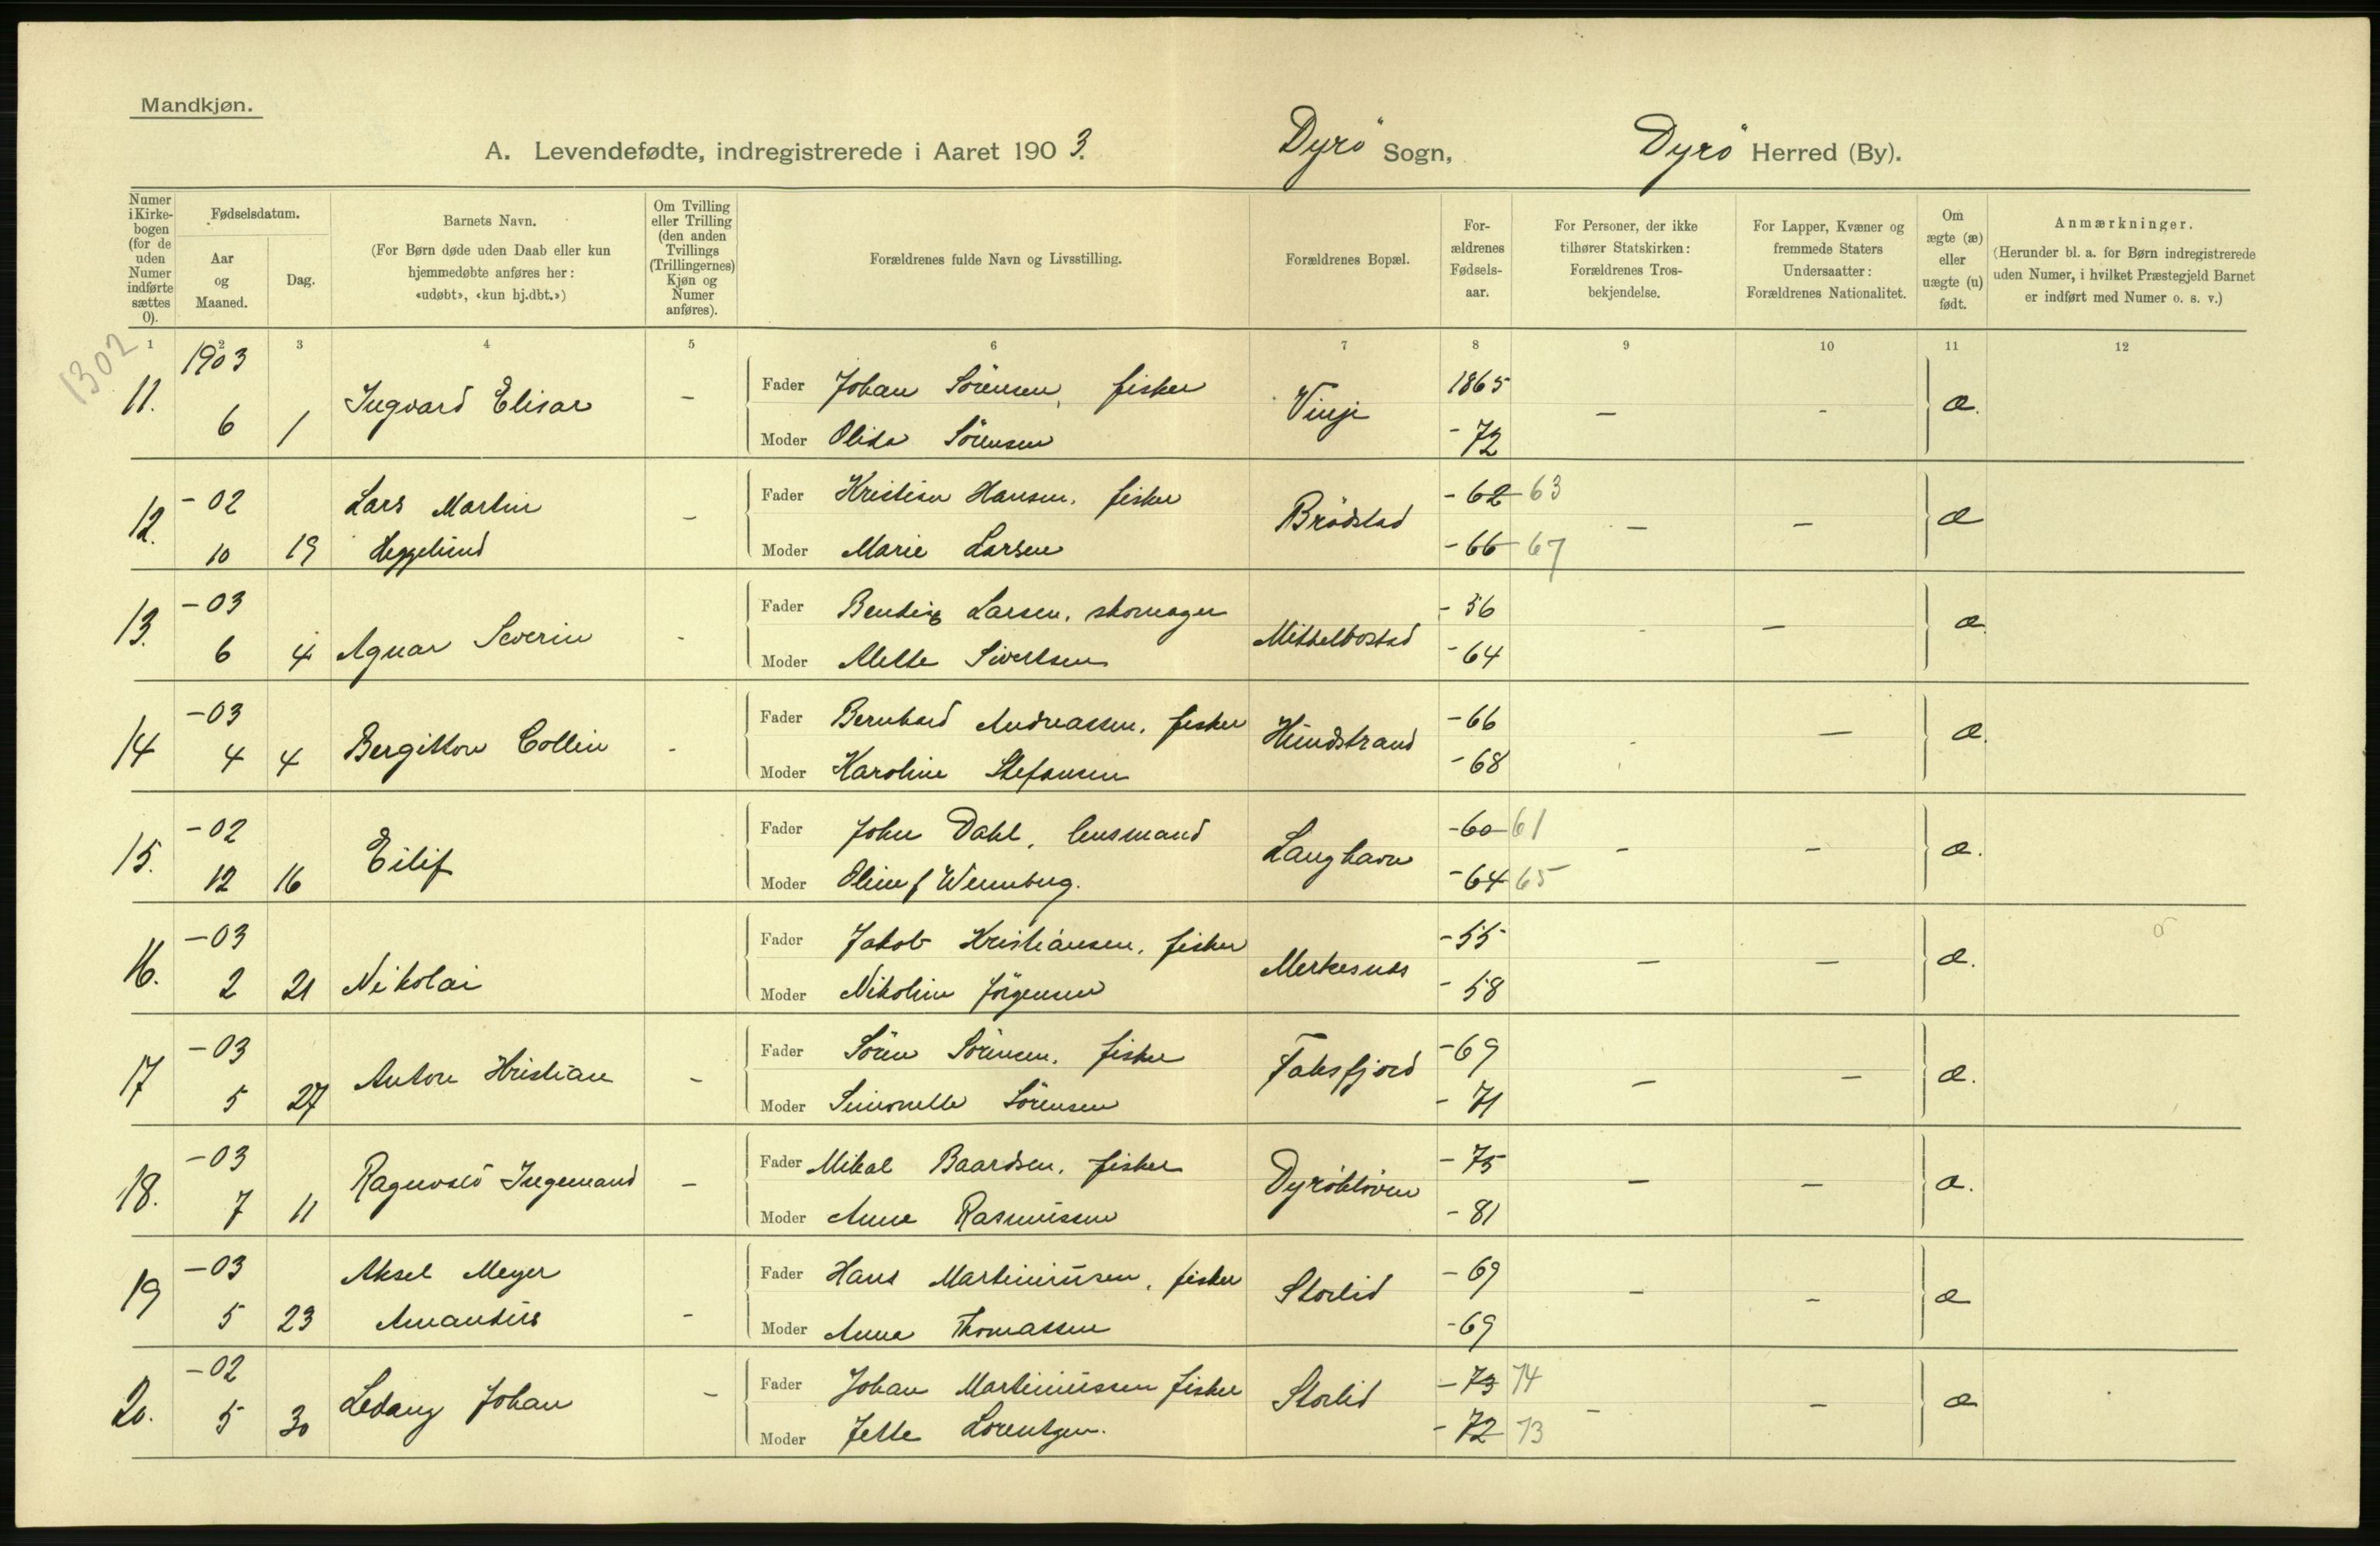 Mandkjøn.
A. Levendefødte, indregistrerede i Aaret 1903. Dyrö Sogn, Dyrö Herred (By).
Numer i Kirkebogen (for de uden Numer indførte sættes 0).
Fødselsdatum.
Aar og Maaned.
Dag.
Barnets Navn.
(For Børn døde uden Daab eller kun hjemmedøbte anføres her: «udøbt», «kun hj.dbt.»)
Om Tvilling eller Trilling (den anden Tvillings (Trillingernes) Kjøn og Numer anføres).
Forældrenes fulde Navn og Livsstilling.
Forældrenes Bopæl.
Forældrenes Fødselsaar.
For Personer, der ikke tilhører Statskirken: Forældrenes Trosbekjendelse.
For Lapper, Kvæner og fremmede Staters Undersaatter: Forældrenes Nationalitet.
Om ægte (æ) eller uægte (u) født.
Anmærkninger.
(Herunder bl. a. for Børn indregistrerede uden Numer, i hvilket Præstegjeld Barnet er indført med Numer o. s. v.)
1 2 3 4 5 6 7 8 9 10 11 12
1302
11. 1903 6 1 Ingvard Elisar - Fader Johan Sörensen, fisker Vinje 1865 - - æ.
Moder Olida Sörensen - 72
12. - 02 10 19 Lars Martin Heggelund - Fader Kristian Hansen, fisker Brödstad - 62 63 - - æ
Moder Marie Larsen - 66 67
13. - 03 6 4 Agnar Severin - Fader Bendix Larsen, skomager Mikkelbostad - 56 - - æ.
Moder Mette Sivertsen - 64
14 - 03 4 4 Bergitton Collin - Fader Bernhard Andreassen, fisker Hundstrand - 66 - - æ.
Moder Karoline Stefansen - 68
15. - 02 12 16 Eilif Fader John Dahl, lensmand Langhavn - 60 61 - - æ.
Moder Oline f Wennberg. - 64 65
16. - 03 2 21 Nikolai Fader Jakob Kristiansen, fisker Merkesnes - 55 - - æ.
Moder Nikoline Jörgensen - 58
17 - 03 5 27 Anton Kristian - Fader Sören Sörensen, fisker Faksfjord - 69 - - æ.
Moder Simonette Sörensen - 71
18. - 03 7 11 Ragnvald Ingemand - Fader Mikal Baardsen, fisker Dyröklöven - 75 - - æ.
Moder Anna Rasmussen - 81
19 - 03 5 23 Aksel Meyer Amandus - Fader Hans Martinussen, fisker Storlid - 69 - - æ
Moder Anna Thomassen - 69
20. - 02 5 30 Ledang Johan - Fader Johan Martinussen fisker Storlid - 73 74 - - æ
Moder Jette Lorentzen. - 72 73